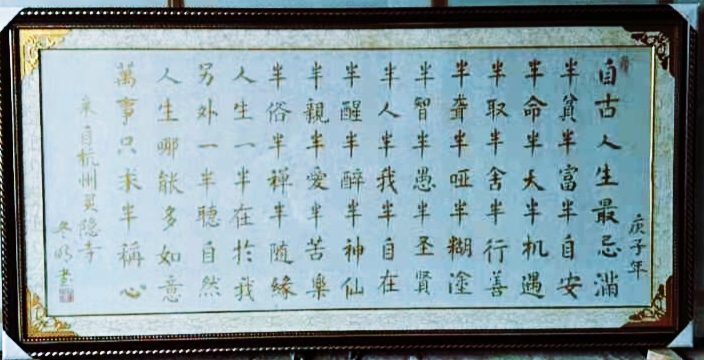 庚子年
自古人生最忌滿
半貧半富半自安
半命半天半机遇
半取半舍半行善
半聋半哑半糊塗
半智半愚半圣賢
半人半我半自在
半醒半醉半神仙
半親半愛半苦樂
半俗半禪半随緣
人生一半在於我
另外一半聽自然
人生哪能多如意
萬事只求半稱心
来自杭州灵隐寺